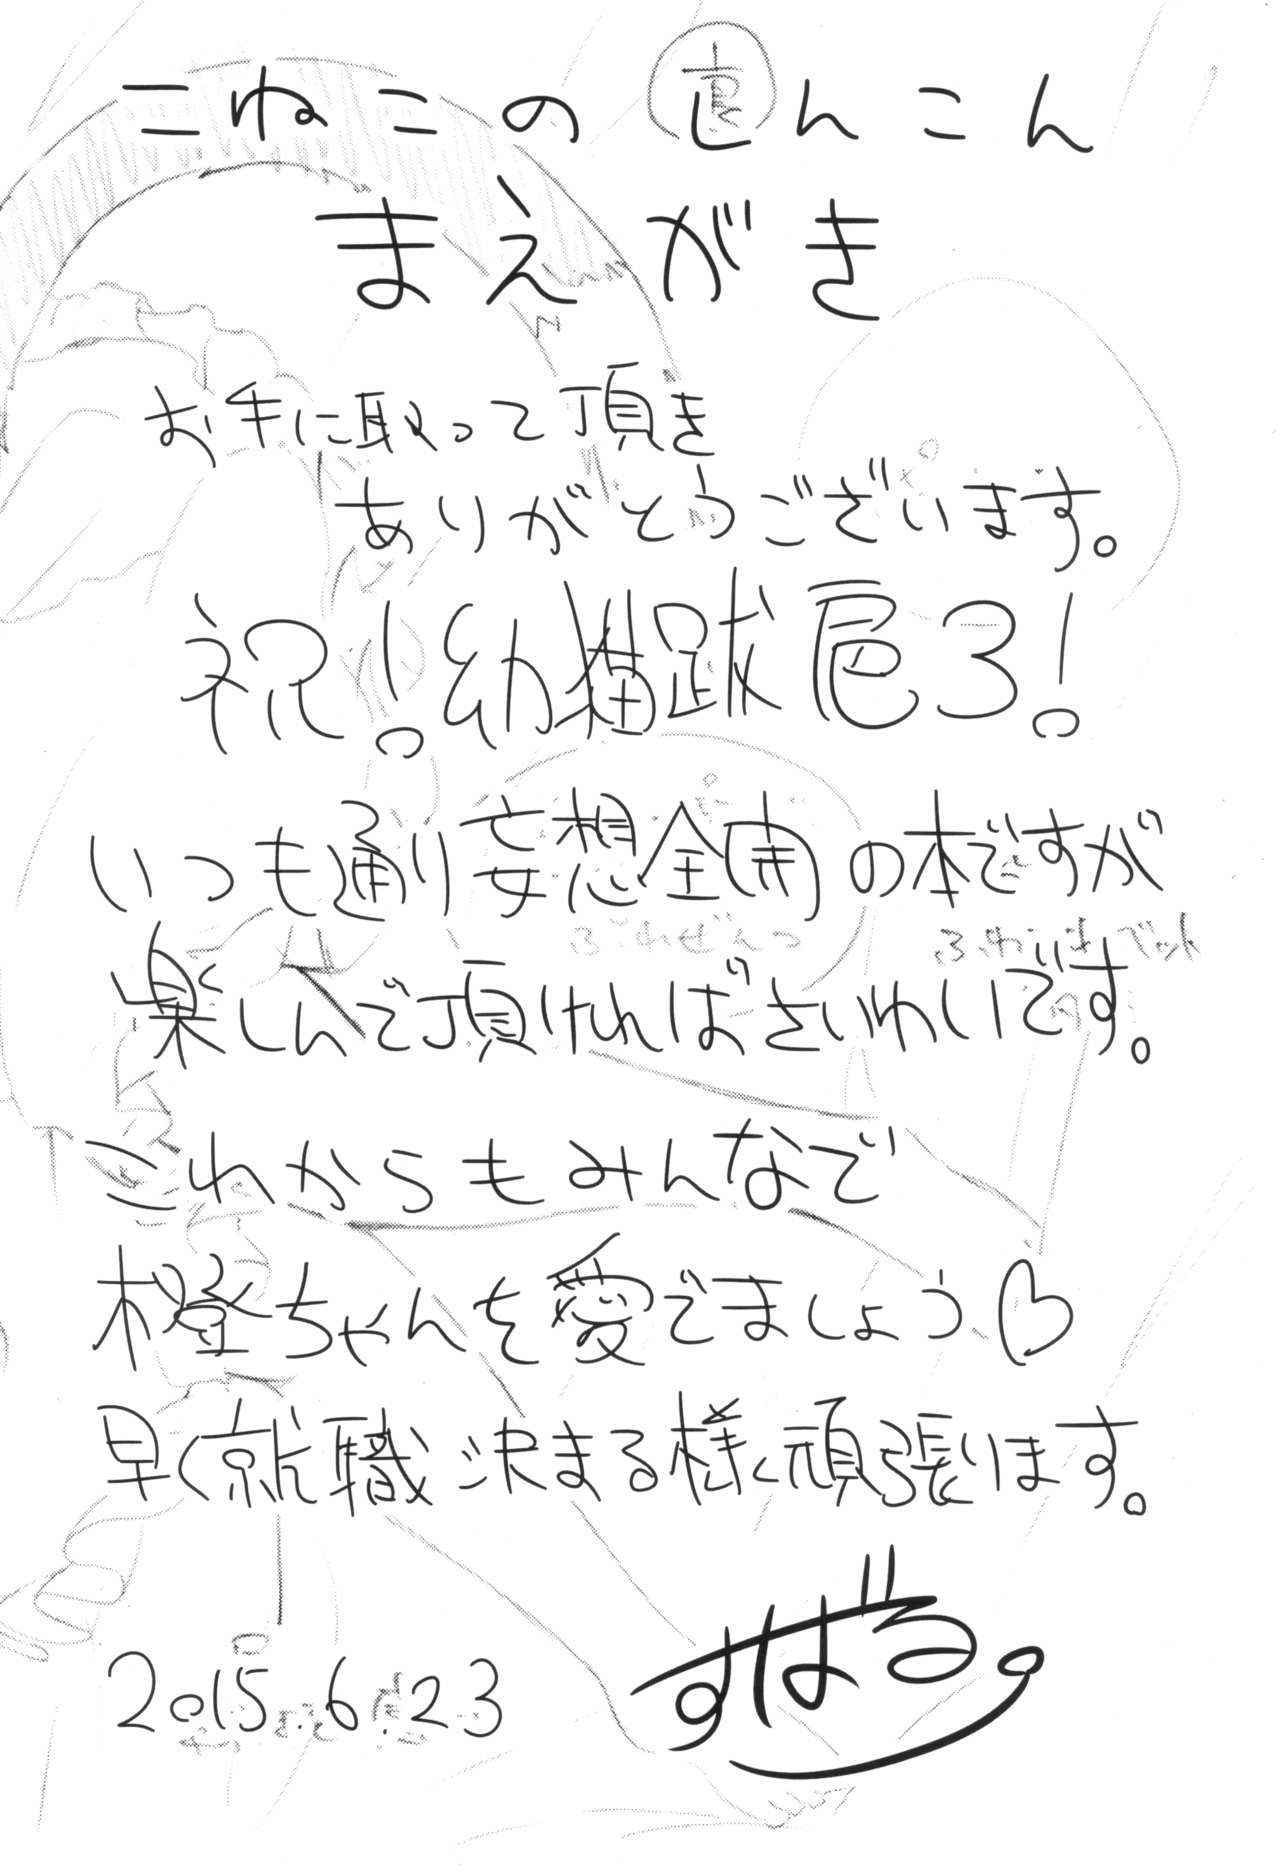 こねこの裏んこん
まえがき
お手に取って頂き
ありがとうございます。
祝!幼猫跋扈3!
いつも通り妄想全開の本ですが
楽しんで頂ければさいわいです。
これからもみんなで
橙ちゃんを愛でましょう♡
早く就職決まる様頑張ります。
2015.6.23
すばる。